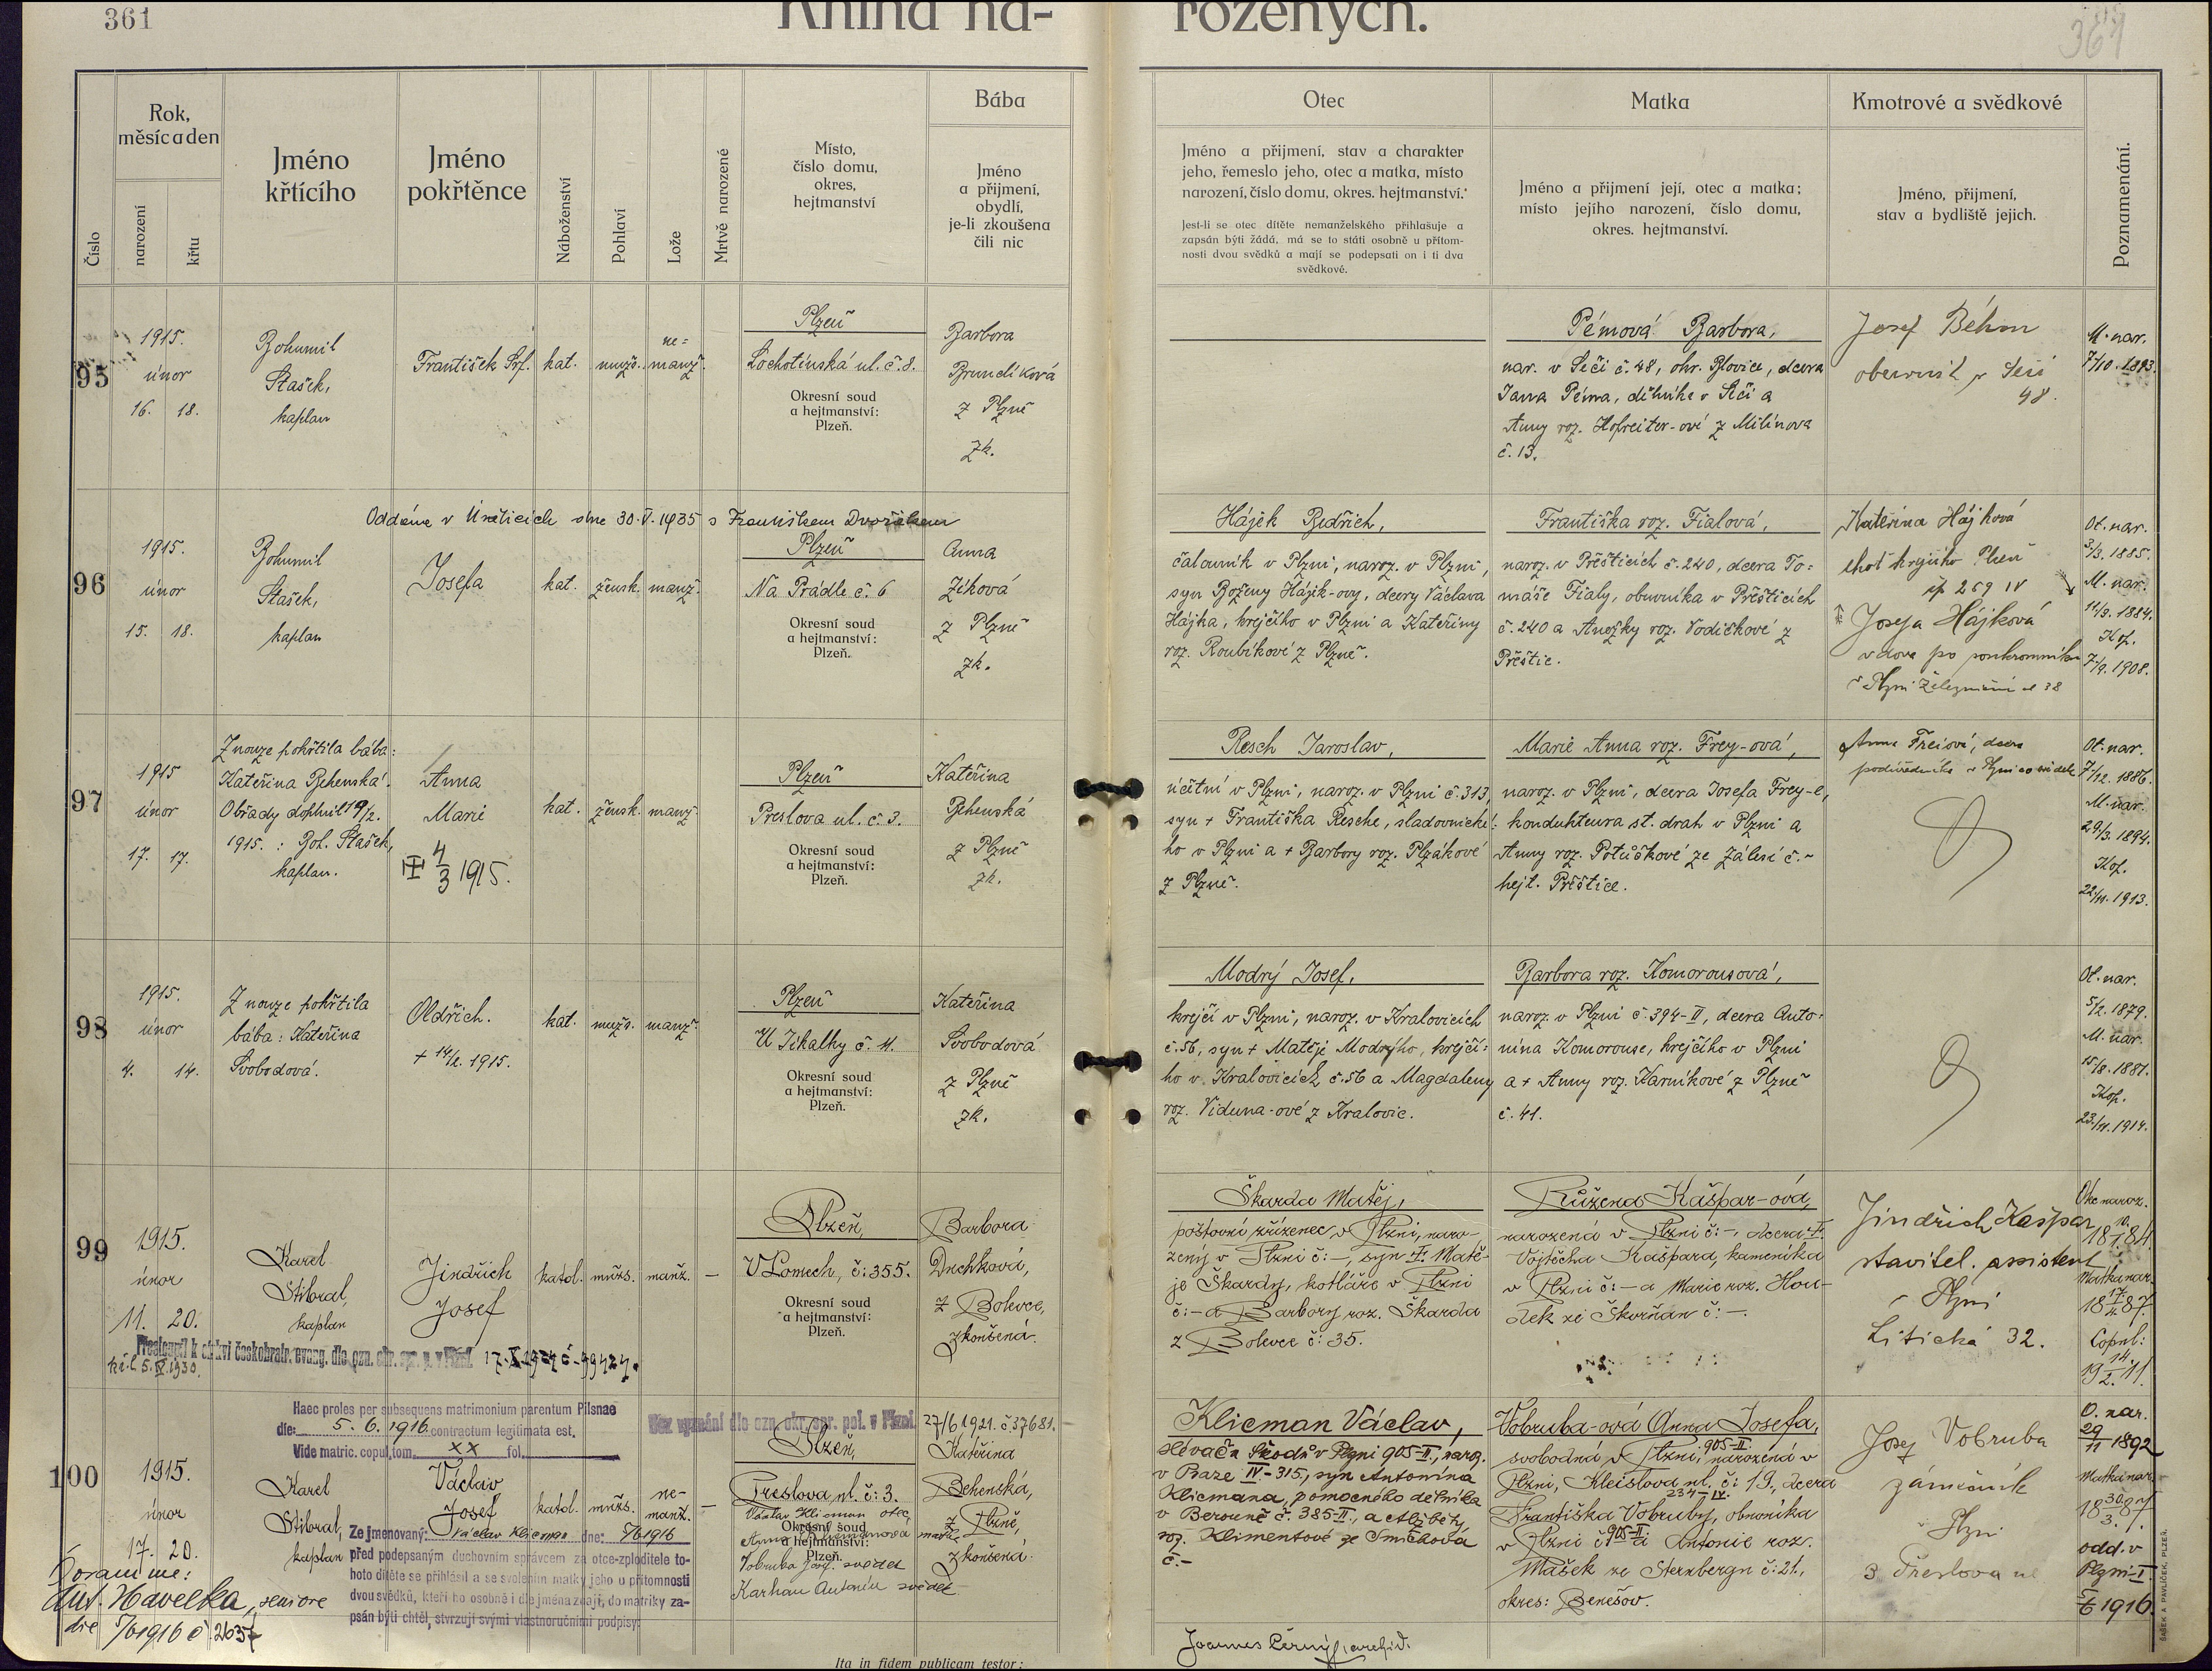 361
Kniha na-
rozených.
361
Číslo
Rok,
měsíc a den
narození
křtu
Jméno
křtícího
Jméno
pokřtěnce
Náboženství
Pohlaví
Lože
Mrtvě narozené
Místo,
číslo domu,
okres,
hejtmanství
Bába
Jméno
a přijmení,
obydlí,
je-li zkoušena
čili nic
Otec
Jméno a přijmení, stav a charakter
jeho, řemeslo jeho, otec a matka, místo
narození, číslo domu, okres. hejtmanství.
Jest-li se otec dítěte nemanželského přihlašuje a
zapsán býti žádá, má se to státi osobně u přítom-
nosti dvou svědků a mají se podepsati on i ti dva
svědkové.
Matka
Jméno a přijmení její, otec a matka;
místo jejího narození, číslo domu,
okres. hejtmanství.
Kmotrové a svědkové
Jméno, přijmení,
stav a bydliště jejich.
Poznamenání.
95
1915.
únor
16. 18.
Bohumil
Stašek,
kaplan
František Srf.
kat.
mužs.
ne=
manž.
Plzeň
Lochotínská ul. č. 8.
Okresní soud
a hejtmanství:
Plzeň.
Barbora
Brundíková
z Plzně
zk.
Pémová Barbora,
nar. v Seči č. 48, okr. Blovice, dcera
Jana Péma, dělníka v Seči a
Anny roz. Hofreiter-ové z Milínova
č. 13.
Josef Böhm
48.
M. nar.
7/10. 1893.
Oddána v Únělicích dne 30. V. 1935 s Františkem Dvořákem
96
1915.
únor
15. 18.
Bohumil
Stašek,
kaplan
Josefa
kat.
žensk.
manž.
Plzeň
Na Prádle č. 6
Okresní soud
a hejtmanství:
Plzeň.
Anna
Zíková
z Plzně
zk.
Hájek Bedřich,
čalouník v Plzni, naroz. v Plzni,
syn Boženy Hájek-ovy, dcery Václava
Hájka, krejčího v Plzni a Kateřiny
roz. Roubíkové z Plzně.
Františka roz. Fialová,
naroz. v Přešticích č. 240, dcera To=
máše Fialy, obuvníka v Přešticích
č. 240 a Anežky roz. Vodičkové z
Přeštic.
Kateřina Hájková
choť krejčího Plzeň
čp 259 IV
Josefa Hájková
vdova po soukromníku
v Plzni Železniční ul 38
Ot. nar.
3/3. 1885.
M. nar.
11/3. 1884.
Kop.
7/9. 1908.
97
1915
únor
17. 17.
Z nouze pokřtila bába:
Kateřina Behenská.
Obřady doplnil 19/2.
1915. : Boh. Stašek,
kaplan.
Anna
Marie
4/3 1915.
kat.
žensk.
manž.
Plzeň
Preslova ul. č. 3.
Okresní soud
a hejtmanství:
Plzeň.
Kateřina
Behenská
z Plzně
zk.
Resch Jaroslav,
účetní v Plzni, naroz. v Plzni č. 313,
syn + Františka Resche, sladovnické=
ho v Plzni a + Barbory roz. Plzákové
z Plzně.
Marie Anna roz. Frey-ová,
naroz. v Plzni, dcera Josefa Frey-e,
kondukteura st. drah v Plzni a
Anny roz. Potůčkové ze Zálesí č. ~
hejt. Přeštice.
Anna Freiová, dcera
podúředníka v Plzni co svědek
Ot. nar.
7/12. 1886.
M. nar.
29/3. 1894.
Kop.
22/11. 1913.
98
1915.
únor
4. 14.
Z nouze pokřtila
bába: Kateřina
Svobodová.
Oldřich.
+ 14/2. 1915.
kat.
mužs.
manž.
Plzeň
U Jikalky č. 11.
Okresní soud
a hejtmanství:
Plzeň.
Kateřina
Svobodová
z Plzně
zk.
Modrý Josef,
krejčí v Plzni, naroz. v Kralovicích
č. 56, syn + Matěje Modrýho, krejčí=
ho v Kralovicích č. 56 a Magdaleny
roz. Viduna-ové z Kralovic.
Barbora roz. Komorousová,
naroz. v Plzni č. 394-II, dcera Anto=
nína Komorouse, krejčího v Plzni
a + Anny roz. Karníkové z Plzně
č. 41.
Ot. nar.
5/2. 1879.
M. nar.
15/8. 1881.
Kop.
23/11. 1914.
99
1915.
únor
11. 20.
Karel
Stibral,
kaplan
Jindřich
Josef
katol.
mužs.
manž.
—
Plzeň,
V Lomech, č: 355.
Okresní soud
a hejtmanství:
Plzeň.
Barbora
Duchková,
z Bolevce,
zkoušená.
Škarda Matěj,
poštovní zřízenec v Plzni, naro-
zený v Plzni č: –, syn + Matě-
je Škardy, kotláře v Plzni
č: – a Barbory roz. Škarda
z Bolevce č: 35.
Růžena Kašpar-ová,
narozená v Plzni č: –, dcera +
Vojtěcha Kašpara, kameníka
v Plzni č: – a Marie roz. Hou-
dek ze Skvrňan č: –.
Jindřich Kašpar
stavitel. assistent
v Plzni
Litická 32.
Otec naroz.
18 10./1. 84.
Matka nar.
18 17/4. 87.
Copul:
19 14./2. 11.
Přestoupil k církvi českobratr. evang. dle ozn. okr. spr. p. v Plzni
17. X. 1924 č. 99424.
100
Haec proles per subsequens matrimonium parentum Pilsnae
die: 5. 6. 1916 contractum legitimata est.
Vide matric. copul. tom. XX fol.
Bez vyznání dle ozn. okr. spr. pol. v Plzni 27/6 1921. č 37681.
1915.
únor
17. 20.
Karel
Stibral,
kaplan
Václav
Josef
katol.
mužs.
ne-
manž.
—
Plzeň,
Preslova ul. č: 3.
Václav Klicman otec,
Okresní soud
a hejtmanství:
Plzeň.
Vobruba Josef svědek
Karhan Antonín svědek
Kateřina
Behenská,
z Plzně,
zkoušená.
Ze jmenovaný: Václav Klicman dne: 5/6 1916
před podepsaným duchovním správcem za otce-zploditele to-
hoto dítěte se přihlásil a se svolením matky jeho u přítomnosti
dvou svědků, kteří ho osobně i dle jména znají, do matriky za-
psán býti chtěl, stvrzují svými vlastnoručními podpisy:
Coram me:
Ant. Havelka, seniore
die 5/6 1916 č. 2637
Klicman Václav,
slévač u Škodů v Plzni 905-II., naroz.
v Praze IV-315, syn Antonína
Klicmana, pomocného dělníka
v Berouně č. 385-II., a Alžběty
roz. Klimentové ze Smíchova
č. –
Vobruba-ová Anna Josefa,
svobodná v Plzni, 905-II. narozená v
Plzni, Kleislova ul. č: 19, dcera
234-IV.
Františka Vobruby, obuvníka
v Plzni č 905-II a Antonie roz.
Mašek ze Sternbergu č: 21,
okres: Benešov.
Josef Vobruba
zámečník
v Plzni
3 Preslova ul
O. nar.
29/11 1892
Matka nar.
18 30./3. 87.
odd. v
Plzni-I
5/6 1916.
Joannes Černý, archid.
Ita in fidem publicam testor:
ŠAŠEK A PAVLÍČEK, PLZEŇ.